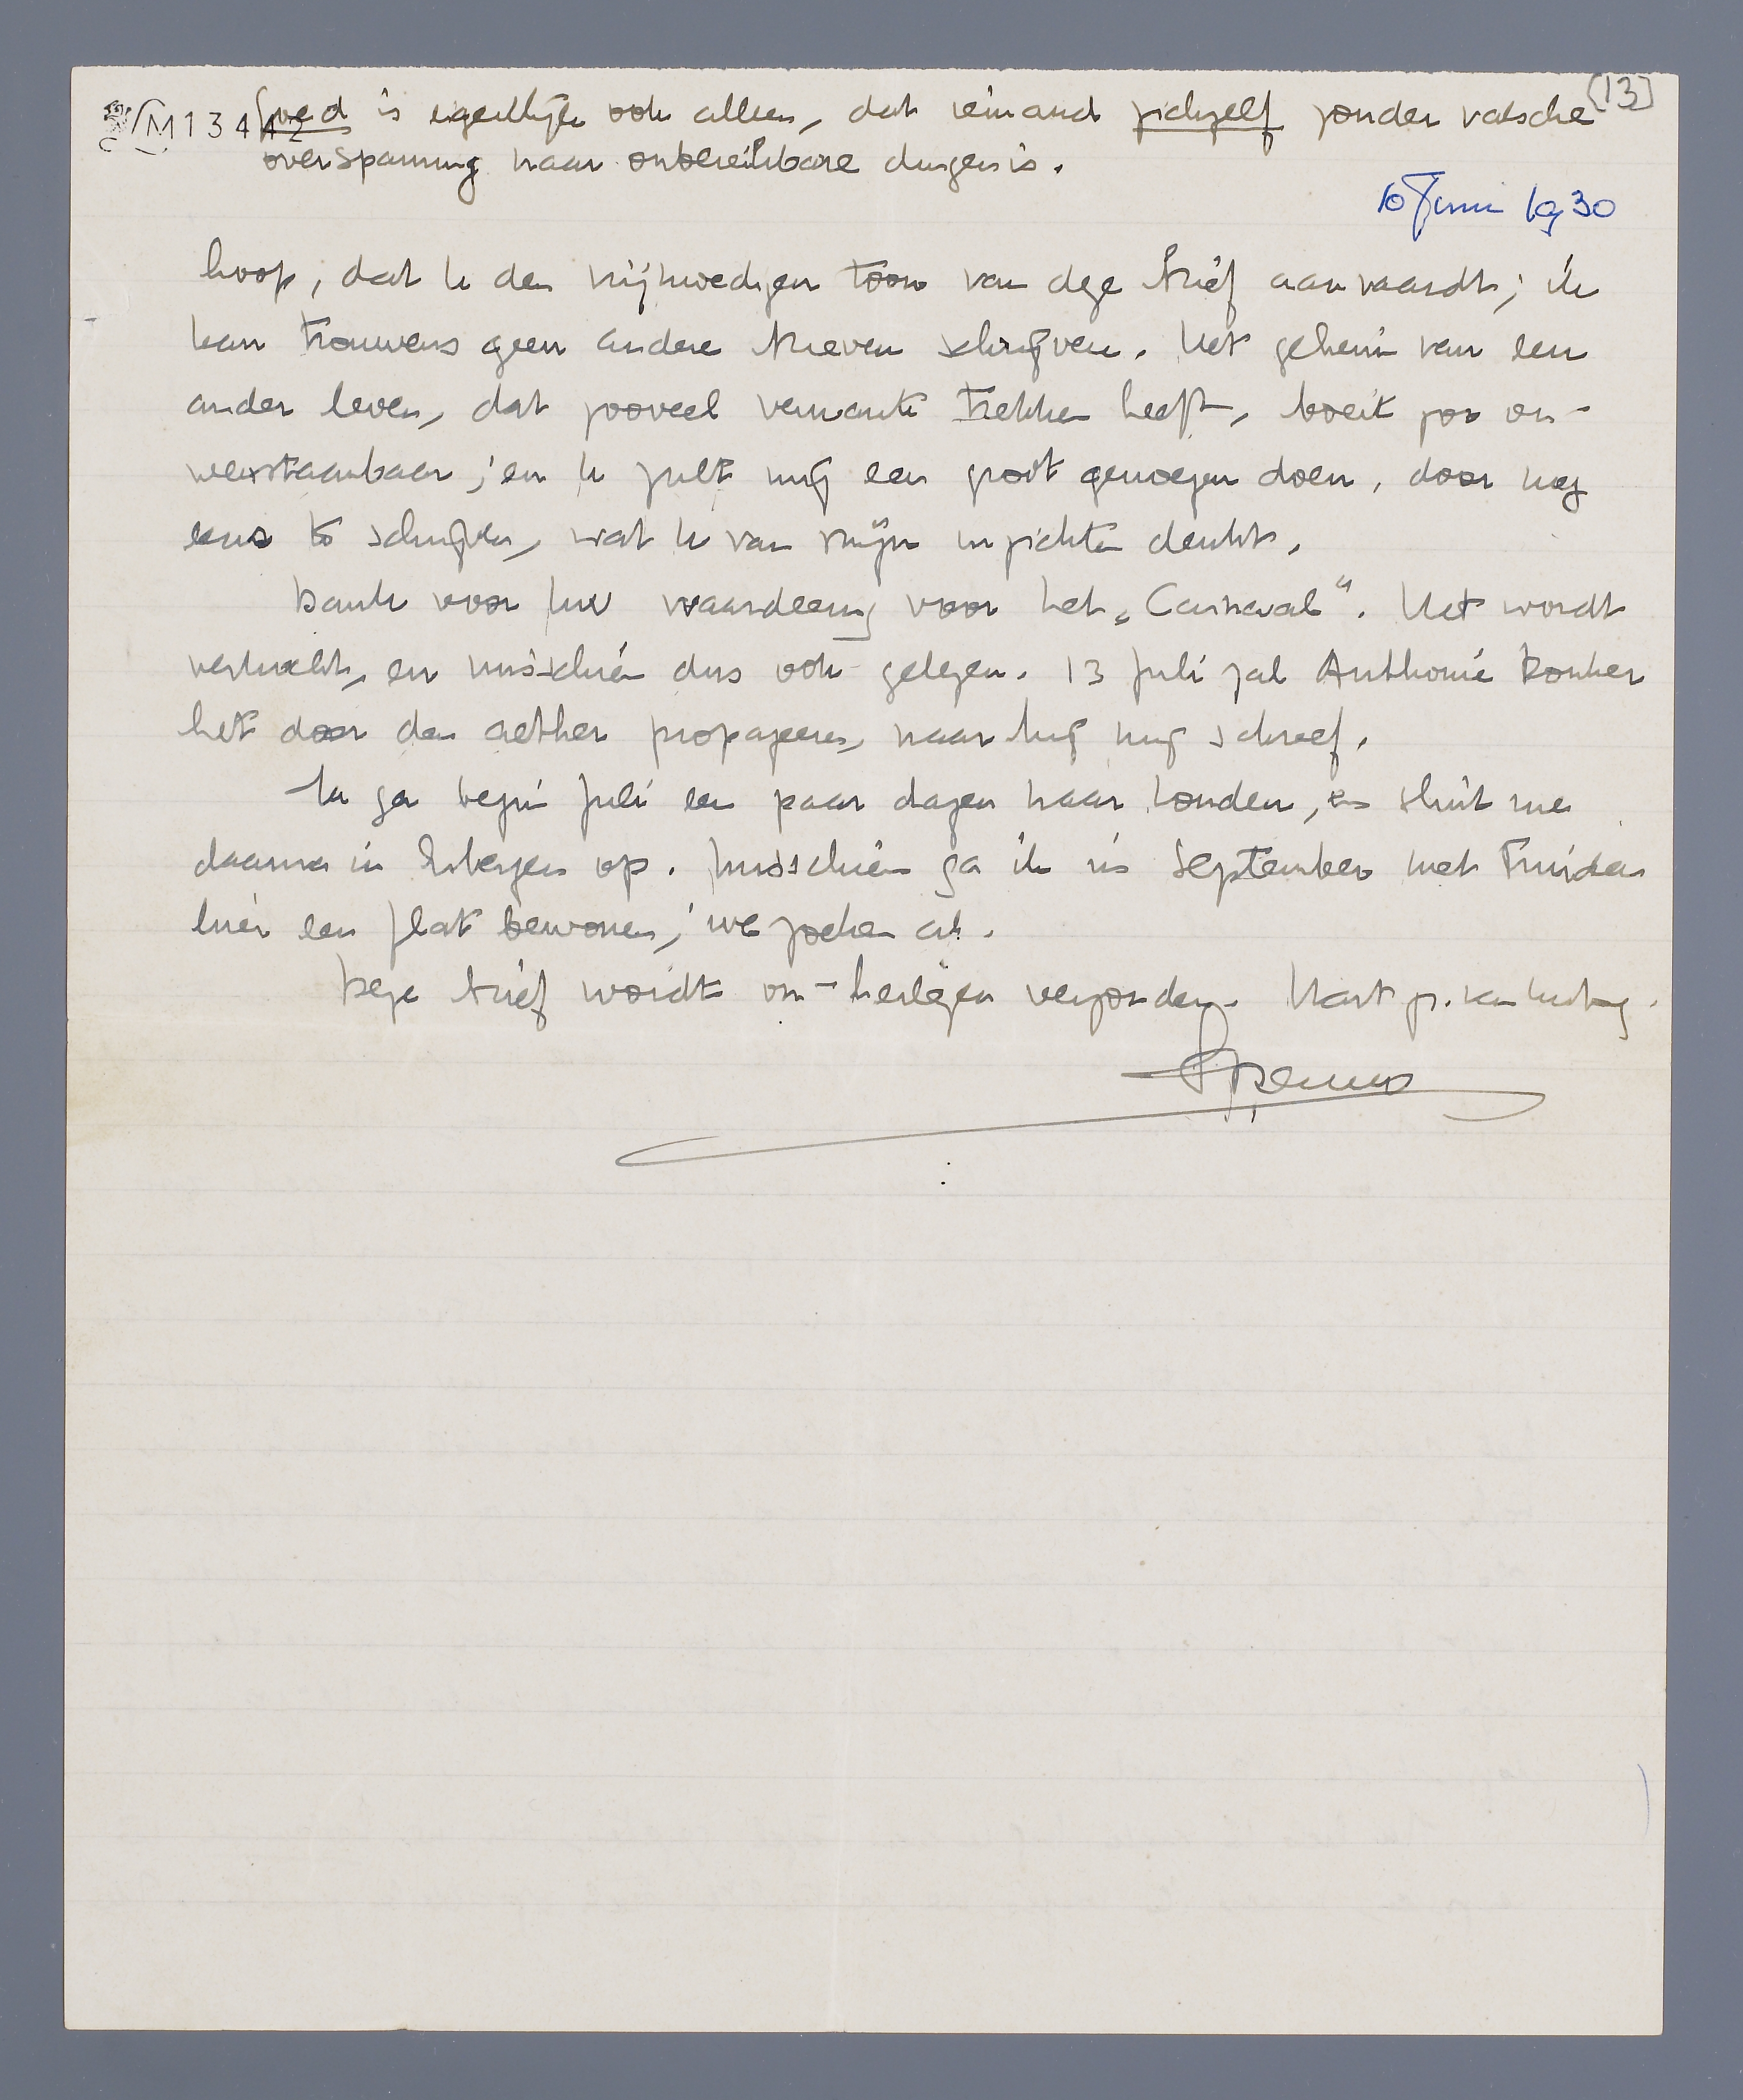 [13]
M 13442
Goed is eigenlijk ook alleen, dat iemand zichzelf zonder valsche
overspanning naar onbereikbare dingen is.
10 Juni 1930
hoop, dat U den vrijmoedigen toon van deze brief aanvaardt; ik
kan trouwens geen andere brieven schrijven. Het geheim van een
ander leven, dat zooveel verwante trekken heeft, boeit zoo on-
weerstaanbaar; en U zult mij een groot genoegen doen, door nog
eens te schrijven, wat U van mijn inzichten denkt.
Dank voor Uw waardeering voor het „Carnaval". Het wordt
verkocht, en misschien dus ook gelezen. 13 Juli zal Anthonie Donker
het door den aether propageeren, naar hij mij schreef.
Ik ga begin Juli een paar dagen naar Londen, en sluit me
daarna in Eibergen op. Misschien ga ik in September met Truida
hier een flat bewonen; we zoeken al.
Deze brief wordt on-herlezen verzonden. Hart gr. van